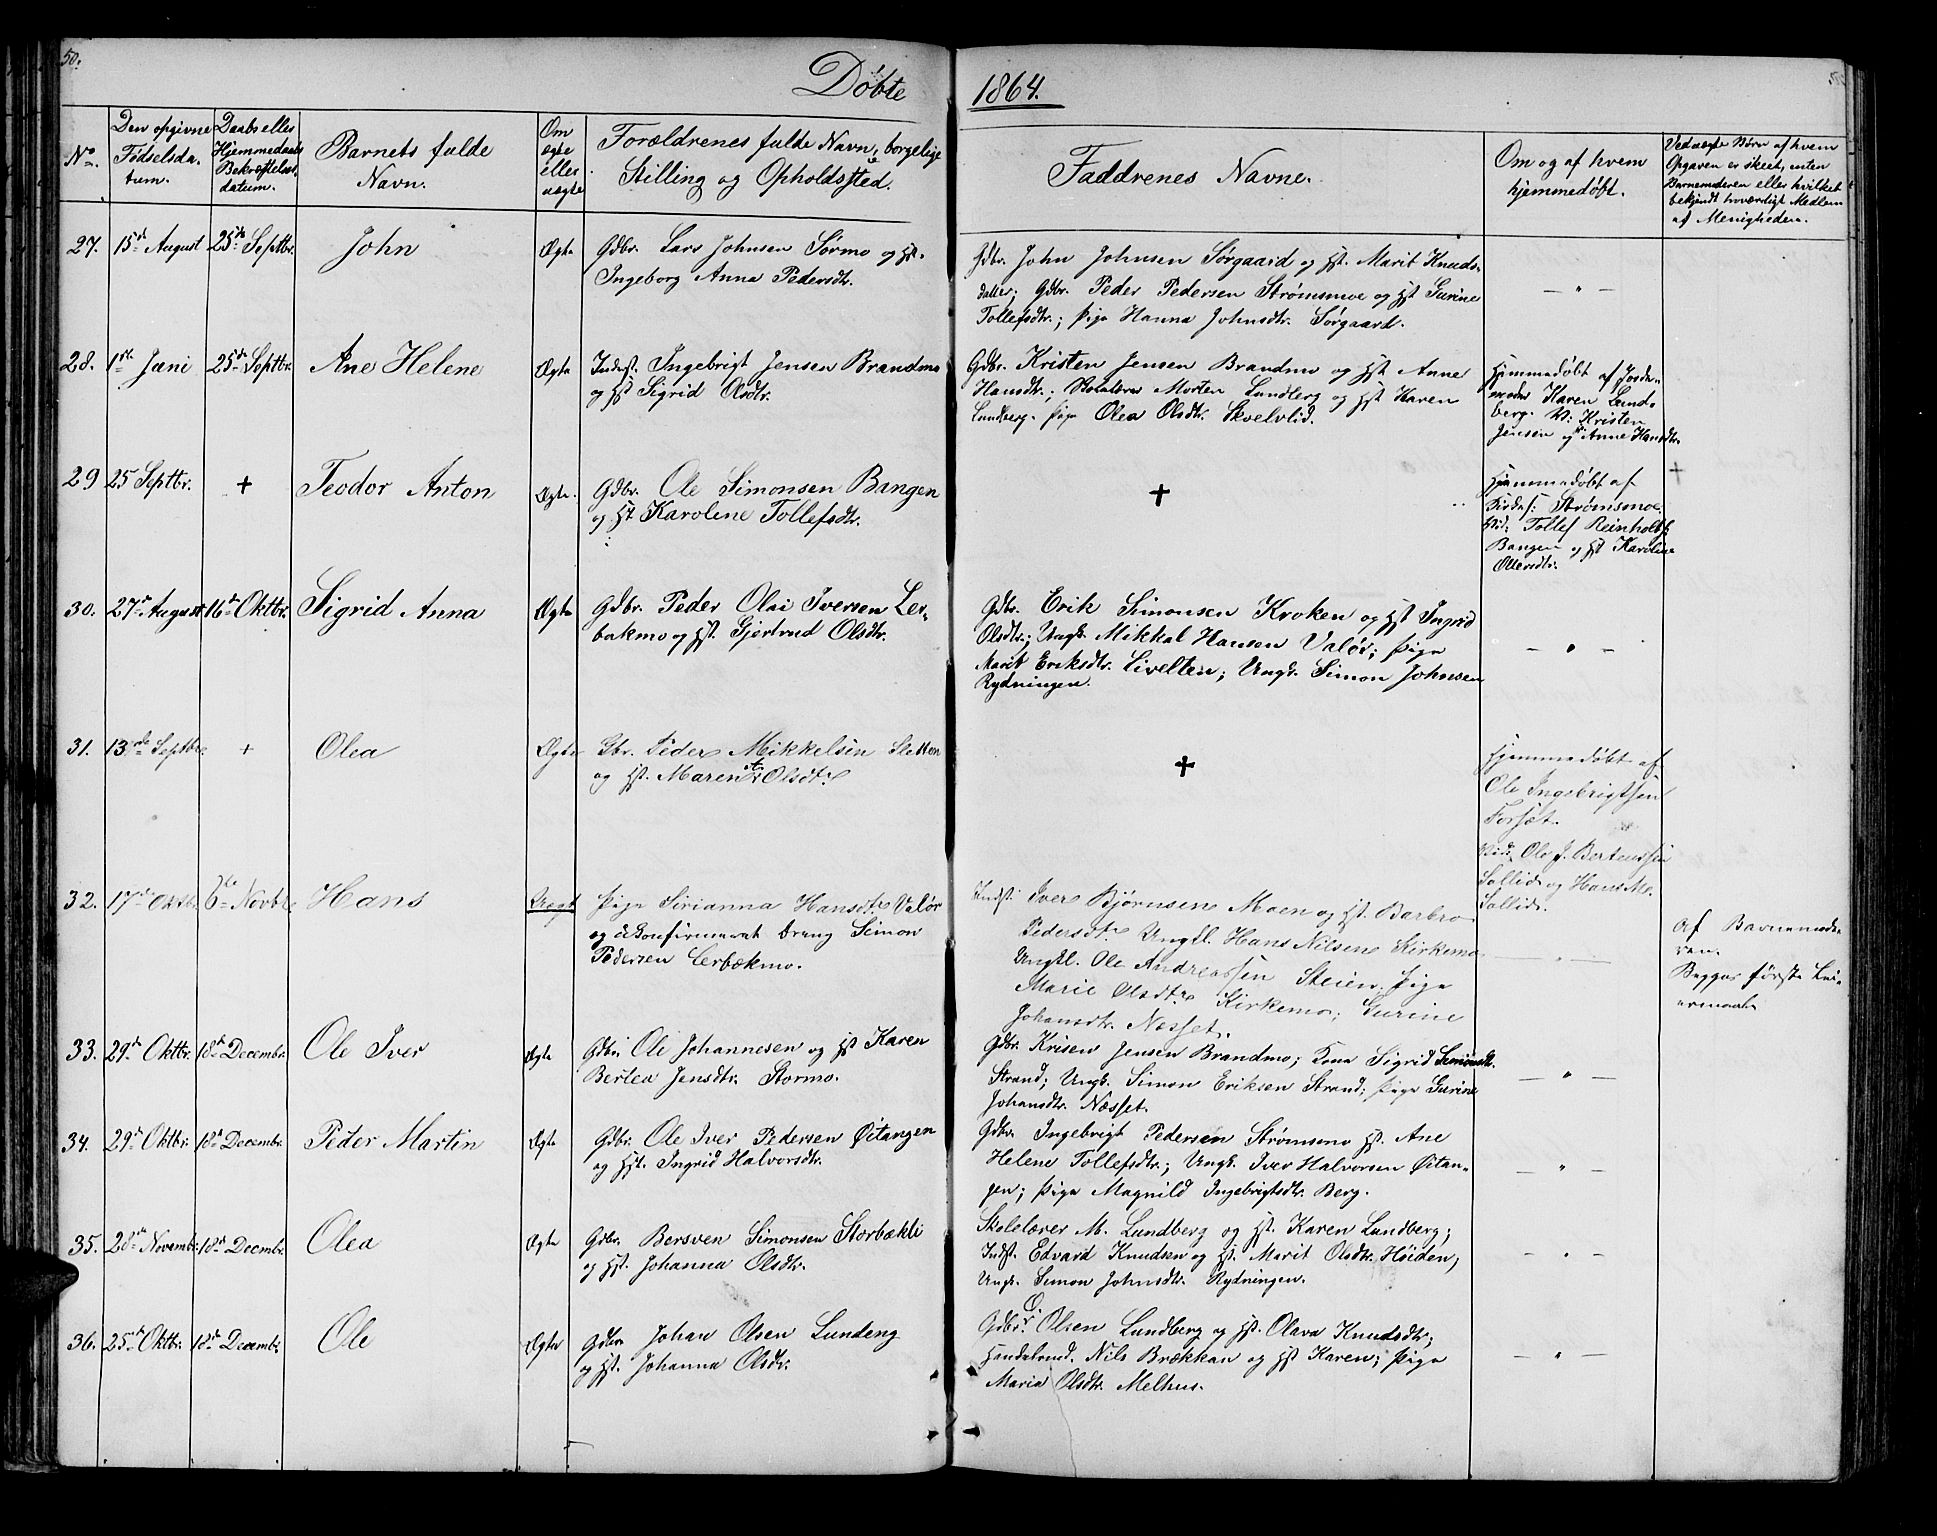 50.
Døbte
1864.
No.
Den opgivne
Fødselsda-
tum.
Daabs eller
Hjemmedaabs
Bekræftelses-
datum.
Barnets fulde
Navn.
Om
ægte
eller
uægte
Forældrenes fulde Navn, borgelige
Stilling og Opholdssted.
Faddrenes Navne.
Om og af hvem
hjemmedøbt.
Ved uægte Børn af hvem
Opgaven er skeet, enten
Barnemoderen eller hvilket
bekjendt hværdigt Medlem
af Menigheden.
27. 15de August 25de Septbr. John Ægte Gdbr. Lars Johnsen Sørmo og Hst.
Ingeborg Anna Pedersdtr.
Gdbr. John Johnsen Sørgaard og Hst. Marit Knuds-
datter; Gdbr. Peder Pedersen Strømsmoe og Hst Gurine
Tollefsdtr.; Pige Hanna Johnsdtr. Sørgaard.
— " —
28. 1ste Juni 25de Septbr. Ane Helene Ægte Inderst. Ingebrigt Jensen Brandmo
og Hst Sigrid Olsdtr.
Gdbr. Kristen Jensen Brandmo og Hst Anne
Hansdtr.; Skolelærer Morten Lundberg og Hst Karen
Lundberg. Pige Olea Olsdtr. Skvelvlid.
Hjemmedøbt af Jorde-
moder Karen Lund-
berg. V: Kristen
Jensen og Hst Anne Hansdtr.
29 25 Septbr. + Teodor Anton Ægte. Gdbr. Ole Simonsen Bangen
og Hst Karolene Tollefsdtr.
+
Hjemmedøbt af
Kirkes: Strømsmoe.
Vid: Tollef Reinholdts
Bangen og Hst Karoline
Ollersdtr.
+
30. 27de August 16de Oktbr. Sigrid Anna Ægte Gdbr. Peder Olai Iversen Ler-
bakmo og Hst. Gjertrud Olsdtr.
Gdbr. Erik Simonsen Kroken og Hst Ingrid
Olsdtr.; Ungk. Mikkal Hansen Valør; Pige
Marit Eriksdtr. Livelten; Ungk. Simon Johnsen
Rydningen.
— " —
31. 13de Septbr. + Olea Ægte Gbr. Peder Mikkelsen Sletten
og Hst. Maren A. Olsdtr
+
Hjemmedøbt af
Ole Ingebrigtsen
Forset.
Vid: Ole J. Bertenssen
Sollid og Hans Mo.
Sollid.
32. 17de Oktbr. 6te Novbr. Hans Uægt Pige Sirianna Hansdtr Valør
og ukonfirmerat Dreng Simon
Pedersen Lerbækmo.
Indst. Iver Bjørnsen Moen og Hst. Barbro
Pedersdtr Ungkl. Hans Nilsen Kirkemo
Ungkl. Ole Andreassen Steien. Pige
Marie Olsdtr Kirkemo; Gurine
Johansdtr. Næsset.
— " —
Af Barnemode-
ren.
Begges første Lei-
ermaal.
33. 29de Oktbr. 18de Decembr. Ole Iver Ægte Gdbr. Ole Johannesen og Hst Karen
Berlea Jensdtr. Stormo.
Gdbr. Krisen Jensen Brandmo; Kona Sigrid Simonsdtr.
Strand; Ungk. Simon Eriksen Strand; Pige Gurine
Johansdtr. Næsset.
— " —
34. 29de Oktbr. 18de Decembr. Peder Martin Ægte Gdbr. Ole Iver Pedersen Øitangen
og Hst. Ingrid Halvorsdtr.
Gdbr. Ingebrigt Pedersen Strømsmo Hst. Ane
Helene Tollefsdtr.; Ungk. Iver Halvorsen Øitan-
gen; Pige Magnild Ingebrigtsdtr. Berg.
— " —
35. 28de Novembr. 18de Decmbr. Olea Ægte Gdbr. Bersven Simonsen Storbækli
og Hst. Johanna Olsdtr.
Skolelærer M. Lundberg og Hst. Karen Lundberg;
Indst. Edvard Knudsen og Hst. Marit Olsdtr. Høiden,
Ungk. Simon Johnsdtr. Rydningen.
— " —
36. 25de Oktbr. 18de Decembr. Ole Ægte Gdbr Johan Olsen Lundeng
og Hst. Johanna Olsdtr.
Gdbr. O. Olsen Lundberg og Hst. Olava Knudsdtr;
Handelsmd. Nils Brækkan og Hst Karen; Pige
Maria Olsdtr. Melhus.
— " —